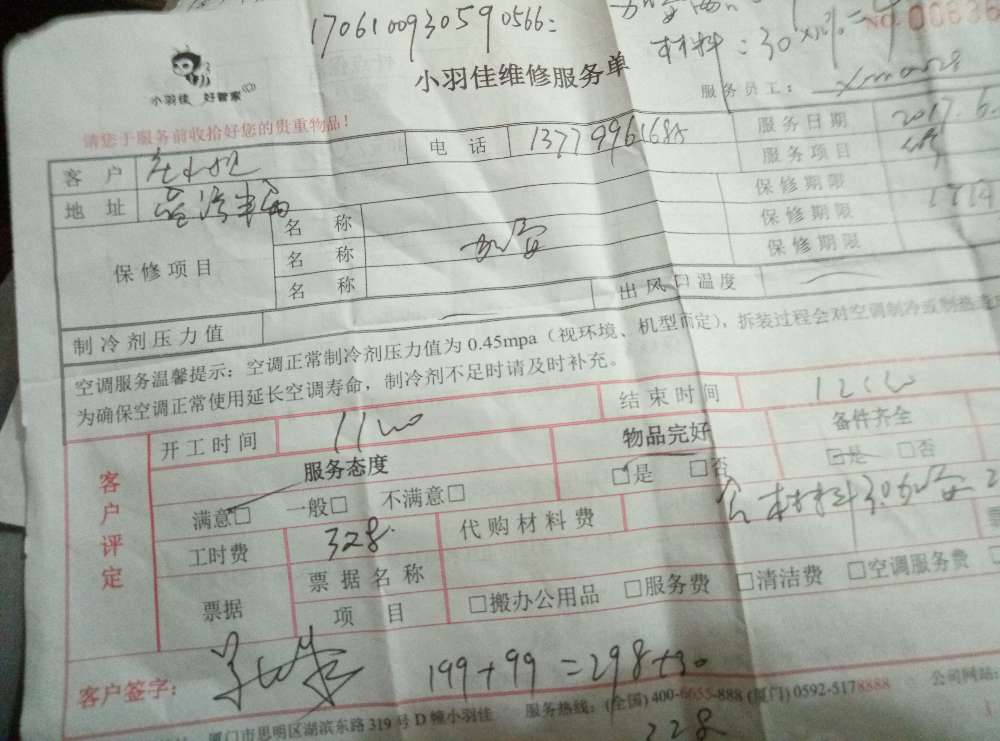 170610093059 0566
材料：30
NO.00636
小羽佳 好管家
小羽佳维修服务单
服务员工：
请您于服务前收拾好您的贵重物品！
客户
电话
服务日期 2017.6.
地址
服务项目
保修项目
名称
保修期限
名称
保修期限
名称
保修期限
制冷剂压力值
出风口温度
空调服务温馨提示：空调正常制冷剂压力值为 0.45mpa（视环境、机型而定），拆装过程会对空调制冷或制热
为确保空调正常使用延长空调寿命，制冷剂不足时请及时补充。
客户评定
开工时间
结束时间
服务态度
物品完好
备件齐全
满意□ 一般□ 不满意□
□是 □否
□是 □否
工时费 328
代购材料费
材料30
票据
票据名称
项目
□搬办公用品 □服务费 □清洁费 □空调服务费
客户签字：
199+99=298+30
328
厦门市思明区湖滨东路 319 号 D 幢小羽佳 服务热线：(全国) 400-6655-888 (厦门) 0592-5178888 公司网站